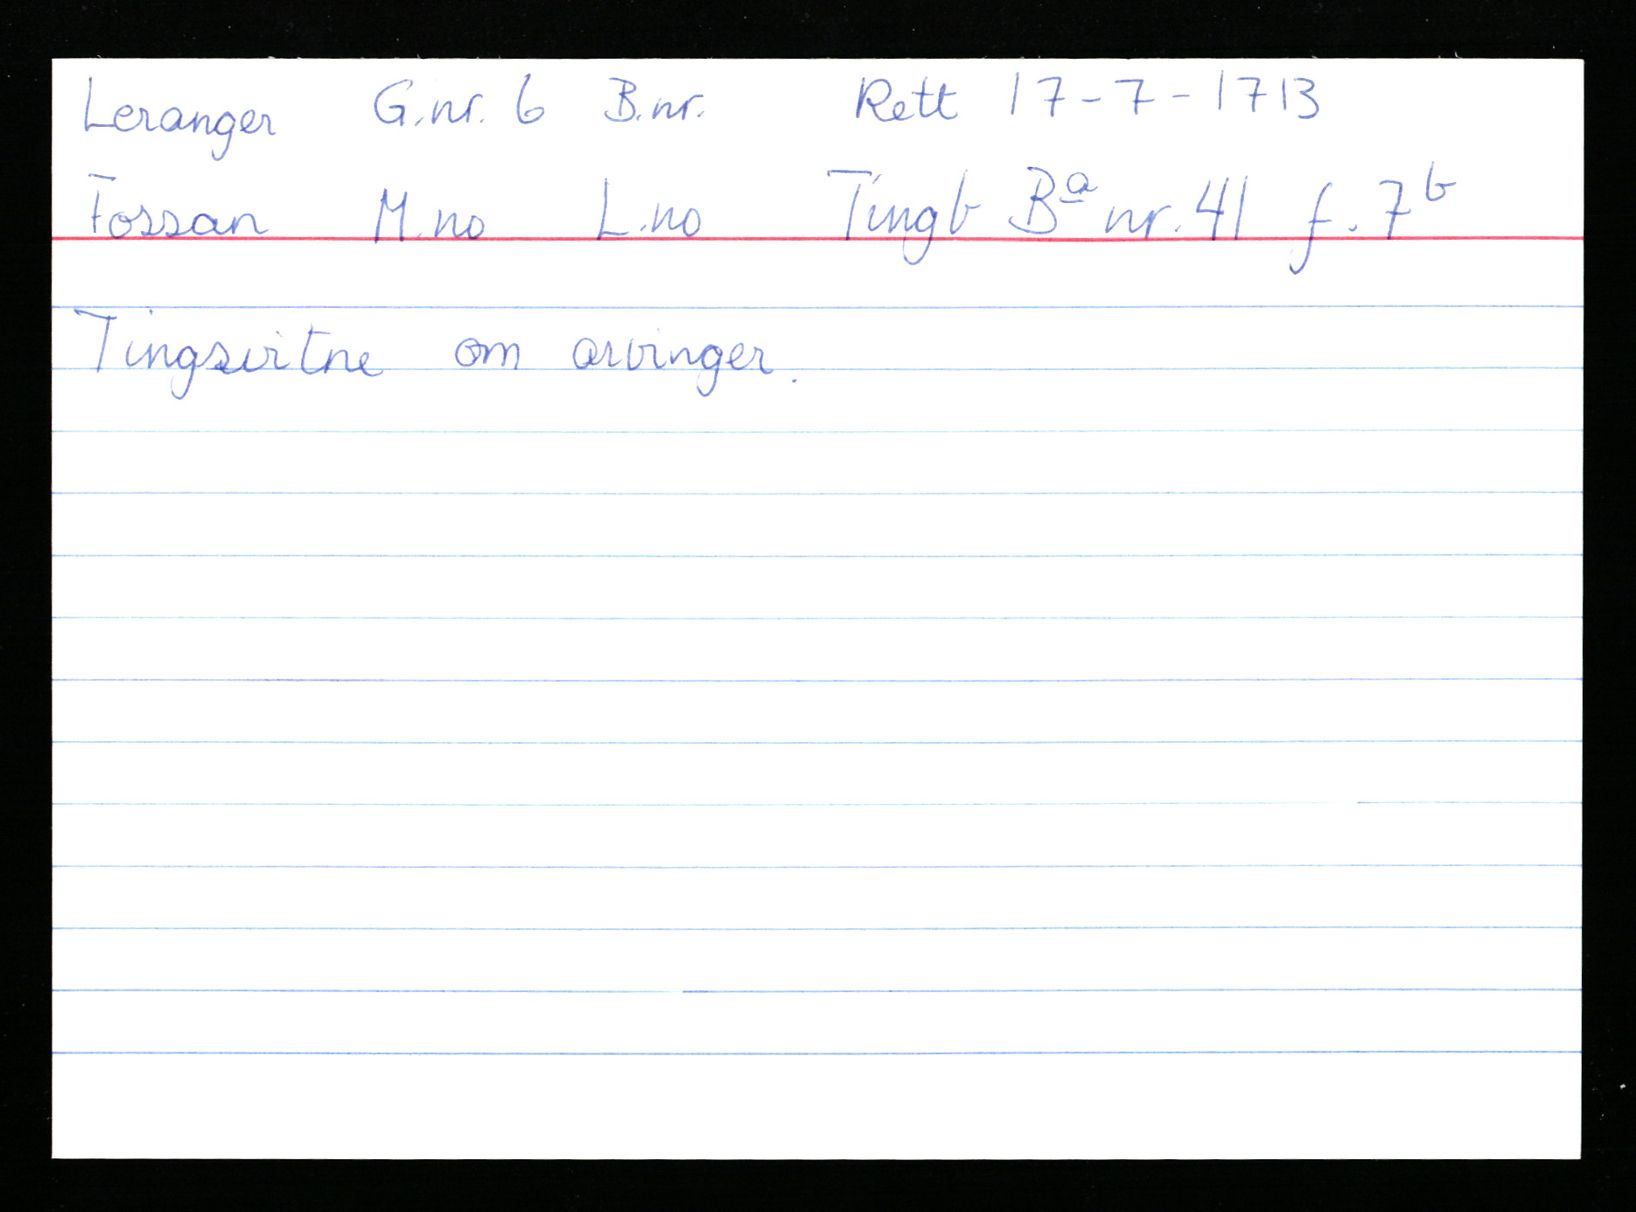 Leranger G.nr. 6 B.nr. Rett 17-7-1713
Fossan M.no L.no Tingb Bª nr. 41 f. 7ᵇ
Tingsvitne om arvinger.